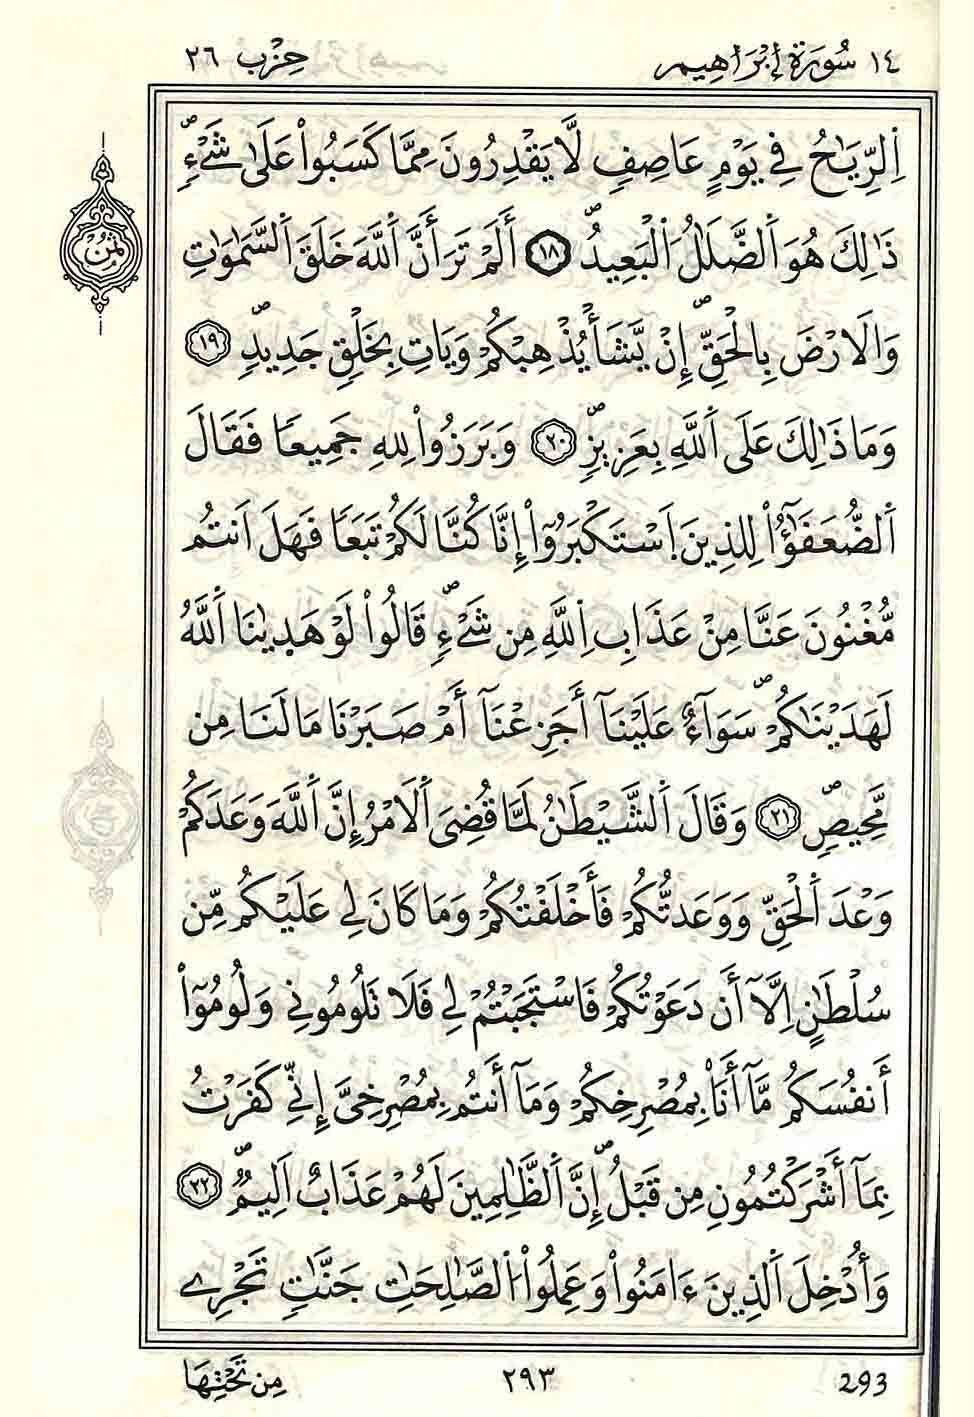 ١٤ سُورَةُ إِبْرَاهِيم حِزْب ٢٦
اِ۬لرِّيَٰحُ فِے يَوْمٍ عَاصِفٖ لَّا يَقْدِرُونَ مِمَّا كَسَبُواْ عَلَىٰ شَےْءٖۖ
ذَٰلِكَ هُوَ اَ۬لضَّلَٰلُ اُ۬لْبَعِيدُۖ ١٨ أَلَمْ تَرَ أَنَّ اَ۬للَّهَ خَلَقَ اَ۬لسَّمَٰوَٰتِ
وَالَارْضَ بِالْحَقِّۖ إِنْ يَّشَأْ يُذْهِبْكُمْ وَيَاتِ بِخَلْقٖ جَدِيدٖۖ ١٩
وَمَا ذَٰلِكَ عَلَى اَ۬للَّهِ بِعَزِيزٖۖ ٢٠ وَبَرَزُواْ لِلهِ جَمِيعاٗ فَقَالَ
اَ۬لضُّعَفَٰٓؤُاْ لِلذِينَ اَ۪سْتَكْبَرُوٓاْ إِنَّا كُنَّا لَكُمْ تَبَعاٗ فَهَلَ اَنتُم
مُّغْنُونَ عَنَّا مِنْ عَذَابِ اِ۬للَّهِ مِن شَےْءٖۖ قَالُواْ لَوْ هَدِيٰنَا اَ۬للَّهُ
لَهَدَيْنَٰكُمْۖ سَوَآءٌ عَلَيْنَآ أَجَزِعْنَآ أَمْ صَبَرْنَا مَا لَنَا مِن
مَّحِيصٖۖ ٢١ وَقَالَ اَ۬لشَّيْطَٰنُ لَمَّا قُضِيَ اَ۬لَامْرُ إِنَّ اَ۬للَّهَ وَعَدَكُمْ
وَعْدَ اَ۬لْحَقِّ وَوَعَدتُّكُمْ فَأَخْلَفْتُكُمْ وَمَا كَانَ لِے عَلَيْكُم مِّن
سُلْطَٰنٍ اِلَّآ أَن دَعَوْتُكُمْ فَاسْتَجَبْتُمْ لِے فَلَا تَلُومُونِے وَلُومُوٓاْ
أَنفُسَكُم مَّآ أَنَا۠ بِمُصْرِخِكُمْ وَمَآ أَنتُم بِمُصْرِخِيَّ إِنِّے كَفَرْتُ
بِمَآ أَشْرَكْتُمُونِ مِن قَبْلُۖ إِنَّ اَ۬لظَّٰلِمِينَ لَهُمْ عَذَابٌ اَلِيمٞۖ ٢٢
وَأُدْخِلَ اَ۬لذِينَ ءَامَنُواْ وَعَمِلُواْ اُ۬لصَّٰلِحَٰتِ جَنَّٰتٖ تَجْرِے
ثُمُن
مِن تَحْتِهَا ٢٩٣ 293